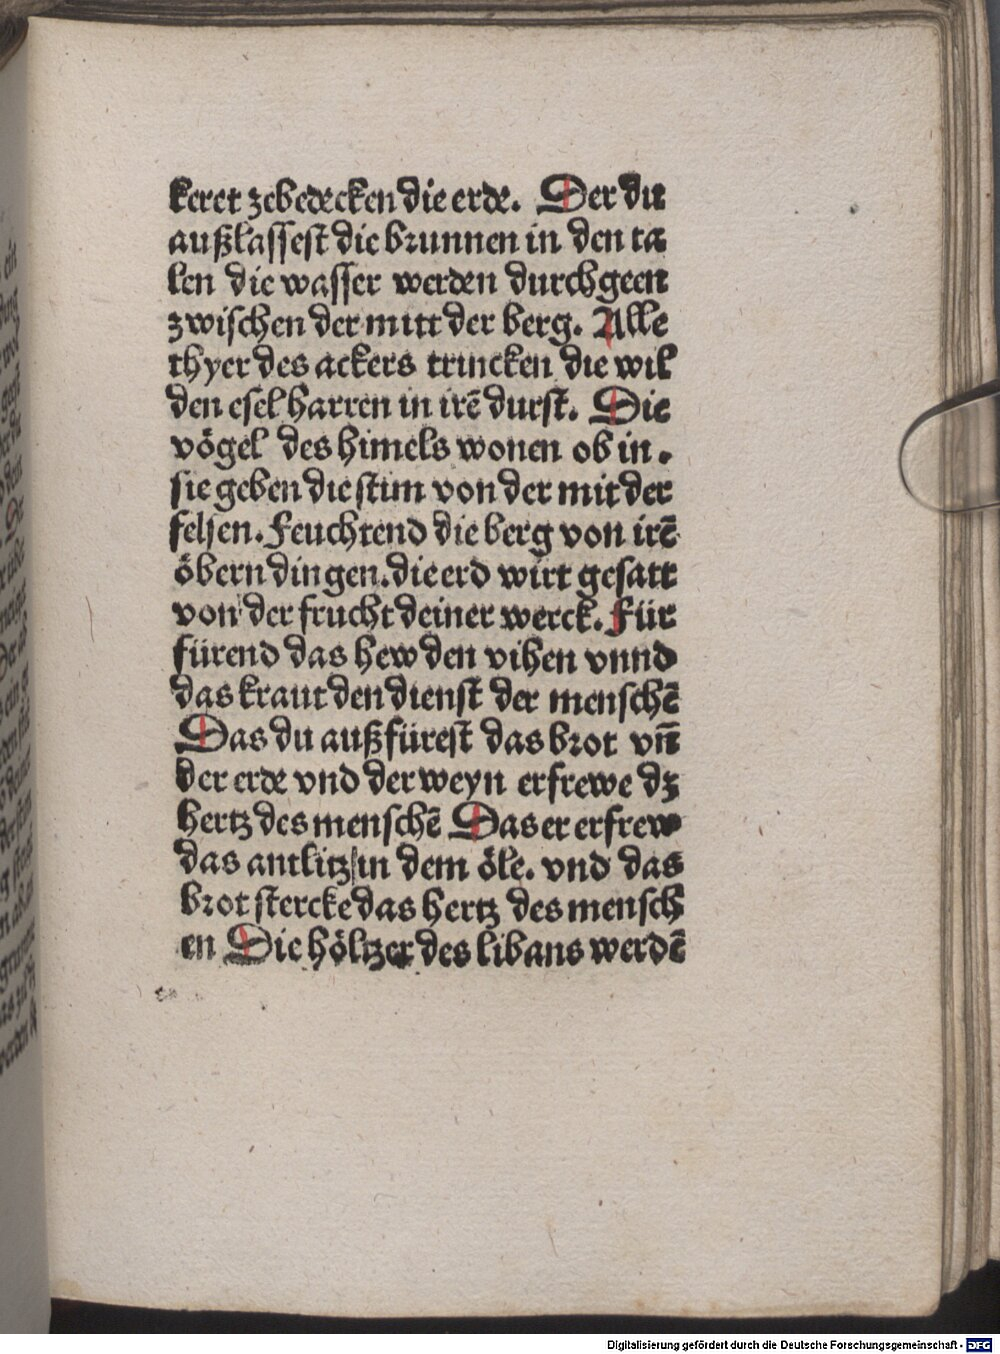 keret zebedecken die erde. Der du
außlassest die brunnen in den ta
len die wasser werden durchgeen
zwischen der mitt der berg. Alle
thyer des ackers trincken die wil
den esel harren in irē durst. Die
vögel des himels wonen ob in.
sie geben die stim von der mit der
felsen. Feuchtend die berg von irē
öbern dingen. die erd wirt gesatt
von der frucht deiner werck. Für
fürend das hew den vihen vnnd
das kraut den dienst der menschē
Das du außfürest das brot vn̄
der erde vnd der weyn erfrewe dz
hertz des menschē Das er erfrew
das antlitz in dem öle. vnd das
brot stercke das hertz des mensch
en Die höltzer des libans werdē
Digitalisierung gefördert durch die Deutsche Forschungsgemeinschaft - DFG